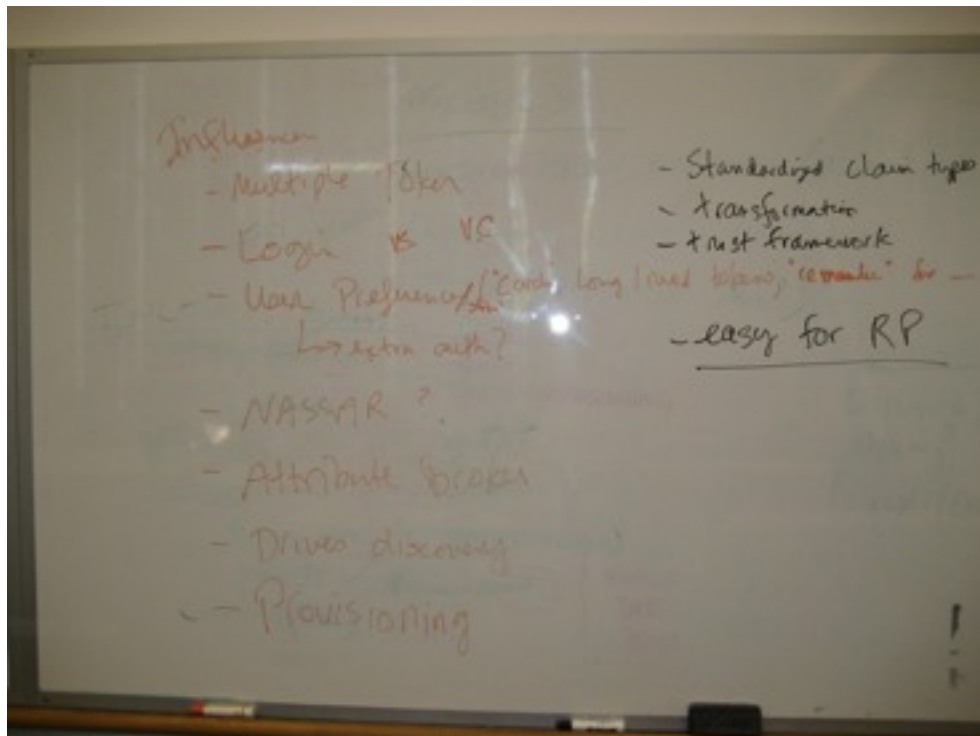 - Multiple Token
- Login vs VS
- User Preference "Card, long lived tokens, for
extra auth?
- NASSAR ?
- Attribute broker
- Drives discovery
- Provisioning
- Standardized claim types
- transformation
- trust framework
- easy for RP